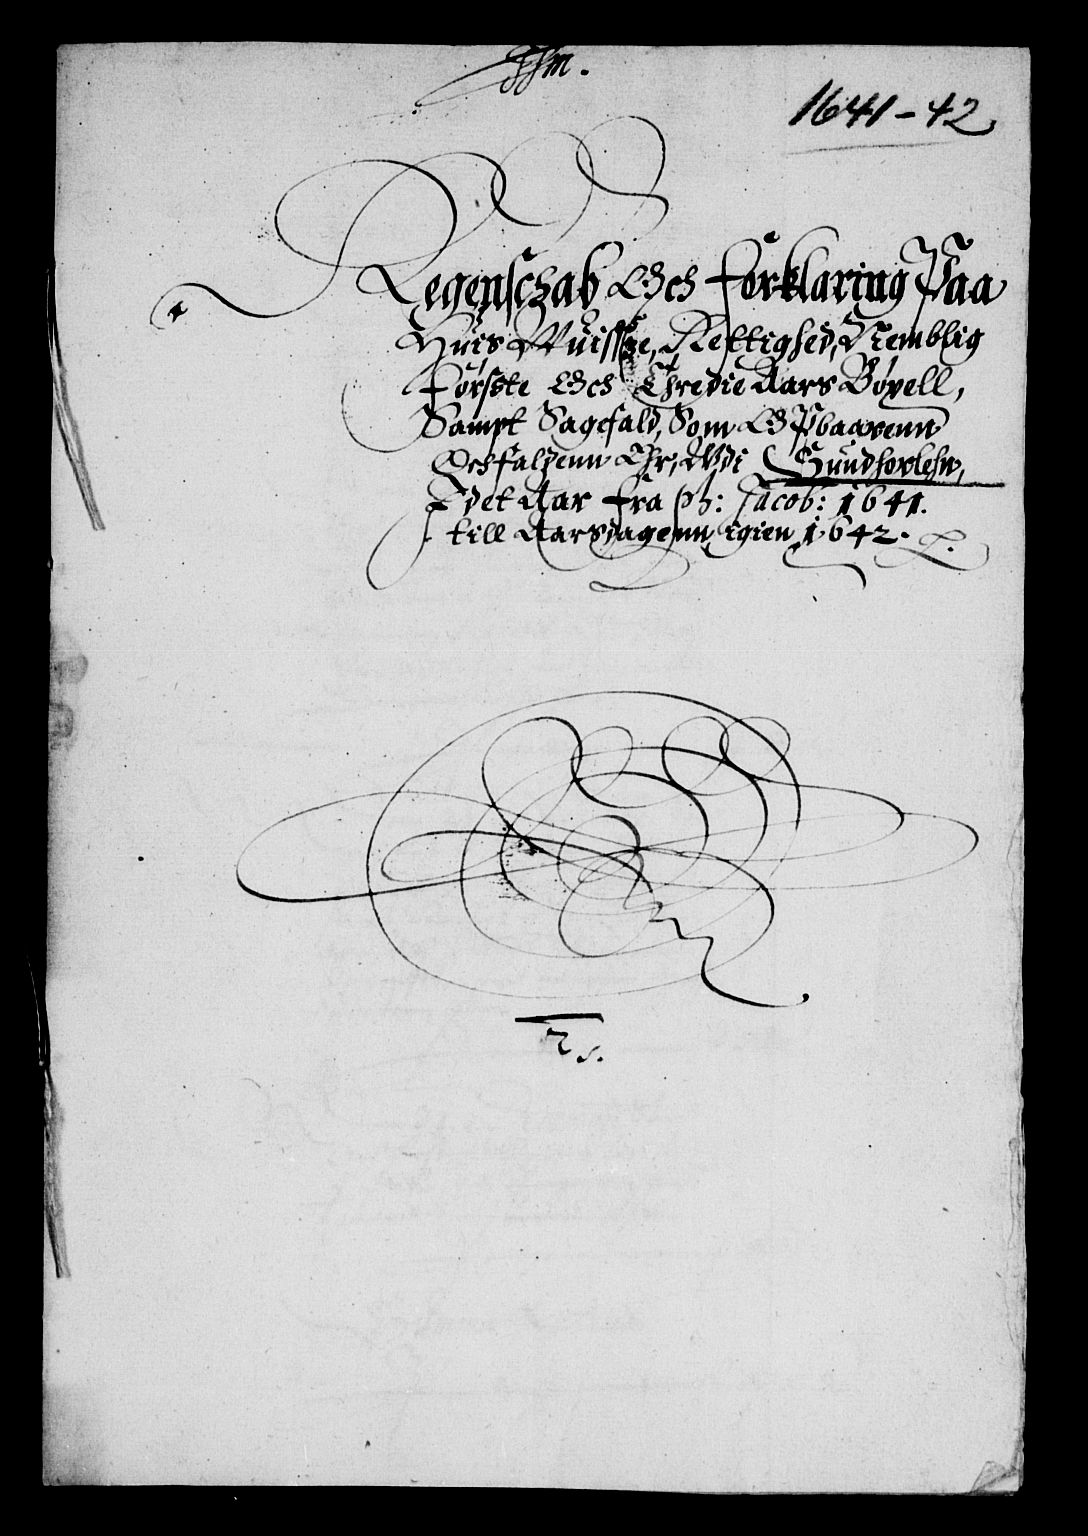 1641-42
Regenschab Och Forklaring Paa
Huis Wuissze, Rettighed, Nemblig
Førszte Och Thredie Aars Bøxell,
Sampt Sagefald, Som Er Paawenn
Och falzenn Er, Wdi Sundhorlehn,
I det Aar fra St: Jacob: 1641.
till Aarsdagenn igien 1642.